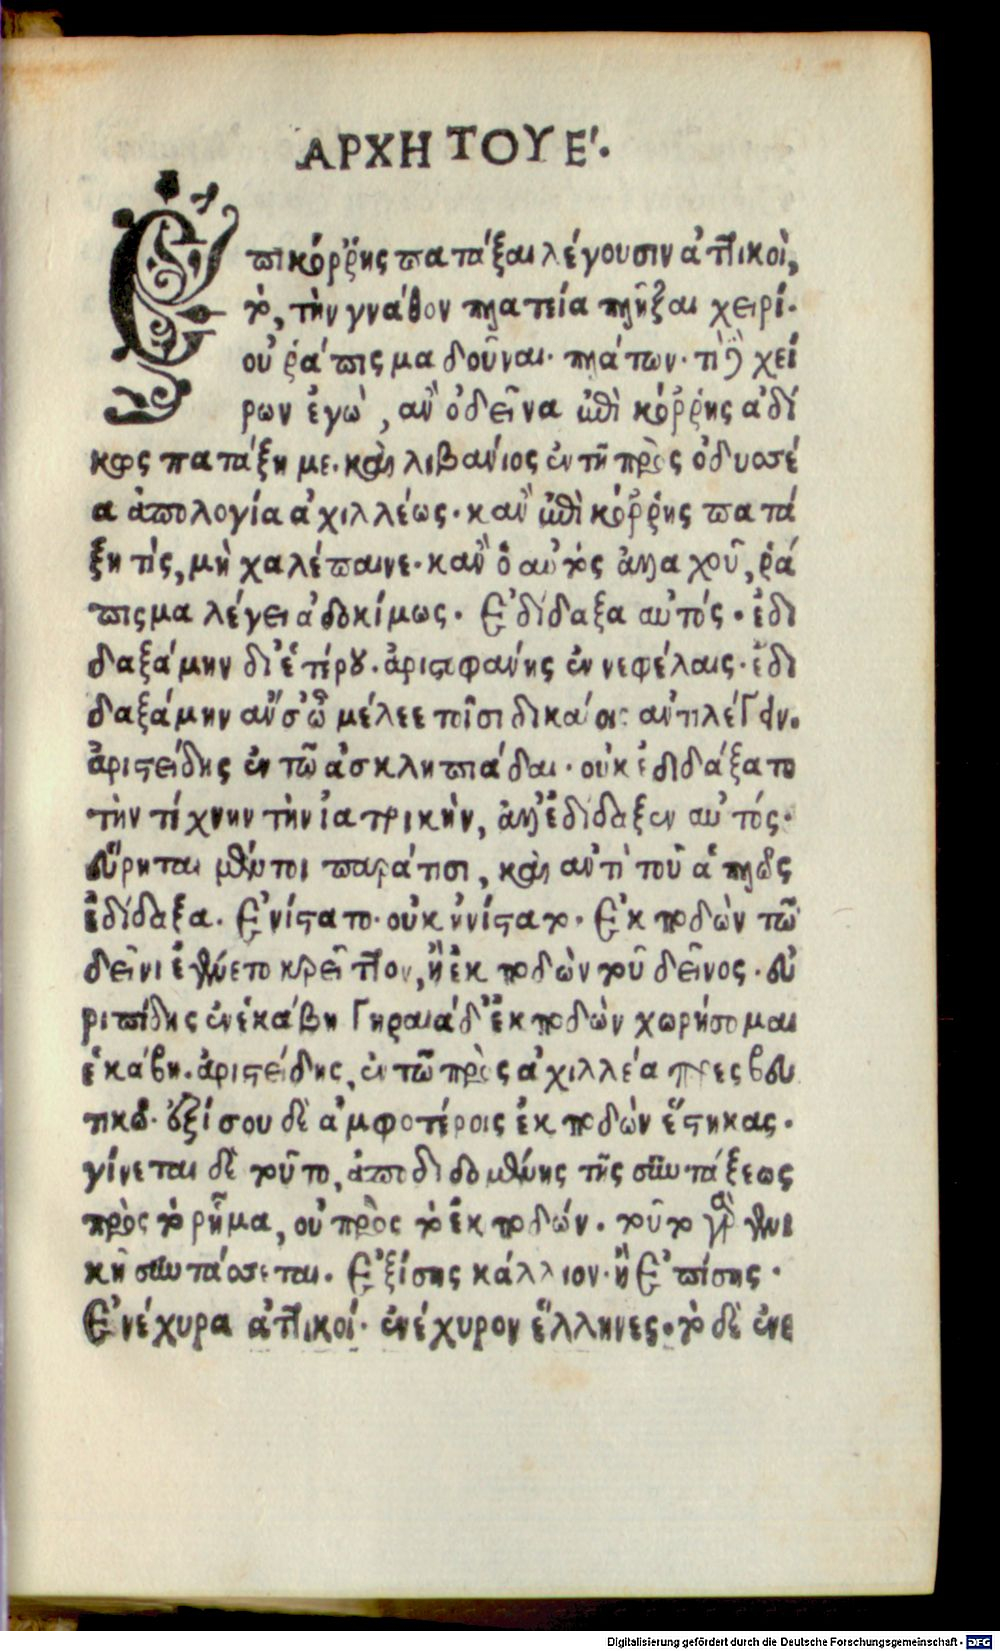 ΑΡΧΗ ΤΟΥ Ε'.
Ἐ
πικόῤῥης πατάξαι λέγουσιν ἀττικοὶ,
τὸ, τὴν γνάθον πλατεία πλῆξαι χειρί.
οὐ ῥάπισμα δοῦναι. πλάτων. τί χεί
ρων ἐγὼ, ἂν ὁ δεῖνα ἐπὶ κόῤῥης ἀδί
κως πατάξῃ με. καὶ λιβανίος ἐν τῇ πρὸς ὀδυσσέ
α ἀπολογία ἀχιλλέως. κἂν ἐπὶ κόῤῥης πατά
ξῃ τὶς, μὴ χαλέπαινε. κἂν ὁ αὐτὸς ἀλλαχοῦ, ῥά
πισμα λέγει ἀδοκίμως. Ἐδίδαξα αὐτός. ἐδι
δαξάμην δι' ἑτέρου. ἀριστοφάνης ἐν νεφέλαις. ἐδι
δαξάμην ἄν σ' ὦ μέλεε τοῖσι δικαίοις ἀντιλέγειν.
ἀριστείδης ἐν τῶ ἀσκληπιάδαι. οὐκ ἐδιδάξατο
τὴν τέχνην τὴν ἰατρικὴν, ἀλλ' ἐδίδαξεν αὐτός.
εὕρηται μέντοι παρά τισι, καὶ ἀντὶ τοῦ ἁπλῶς
ἐδίδαξα. Ἐνίστατο. οὐκ ἠνίστατο. Ἐκποδὼν τῶ
δεῖνι ἐγένετο κρεῖττον, ἢ ἐκποδὼν τοῦ δεῖνος. εὐ
ριπίδης ἐν ἑκάβη Γηραιᾶ δ' ἐκποδὼν χωρήσομαι
ἑκάβη. ἀριστείδης, ἐν τῶ πρὸς ἀχιλλέα πρεσβευ
τικῶ. ἐξίσου δὲ ἀμφοτέροις ἐκποδὼν ἕστηκας.
γίνεται δὲ τοῦτο, ἀποδιδομένης τῆς συντάξεως
πρὸς τὸ ῥῆμα, οὐ πρὸς τὸ ἐκποδών. τοῦτο γὰρ γενι
κῆ συντάσσεται. Ἐξίσης κάλλιον. ἢ Ἐπίσης.
Ἐνέχυρα ἀττικοί. ἐνέχυρον ἕλληνες. τὸ δὲ ἐνε
Digitalisierung gefördert durch die Deutsche Forschungsgemeinschaft - DFG